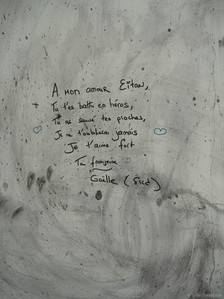 A mon amour Eitan,
Tu t'es battu en héros,
Tu as sauvé tes proches,
Je ne t'oublierai jamais
Je t'aime fort
Ta française
Gaëlle